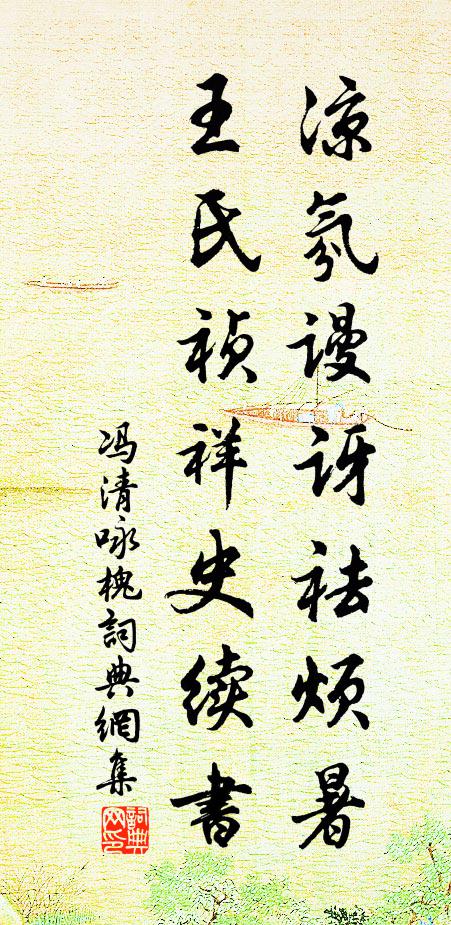 凉氛谩讶祛烦暑
王氏祯祥史续书
冯清咏槐词典網集
詞典网印